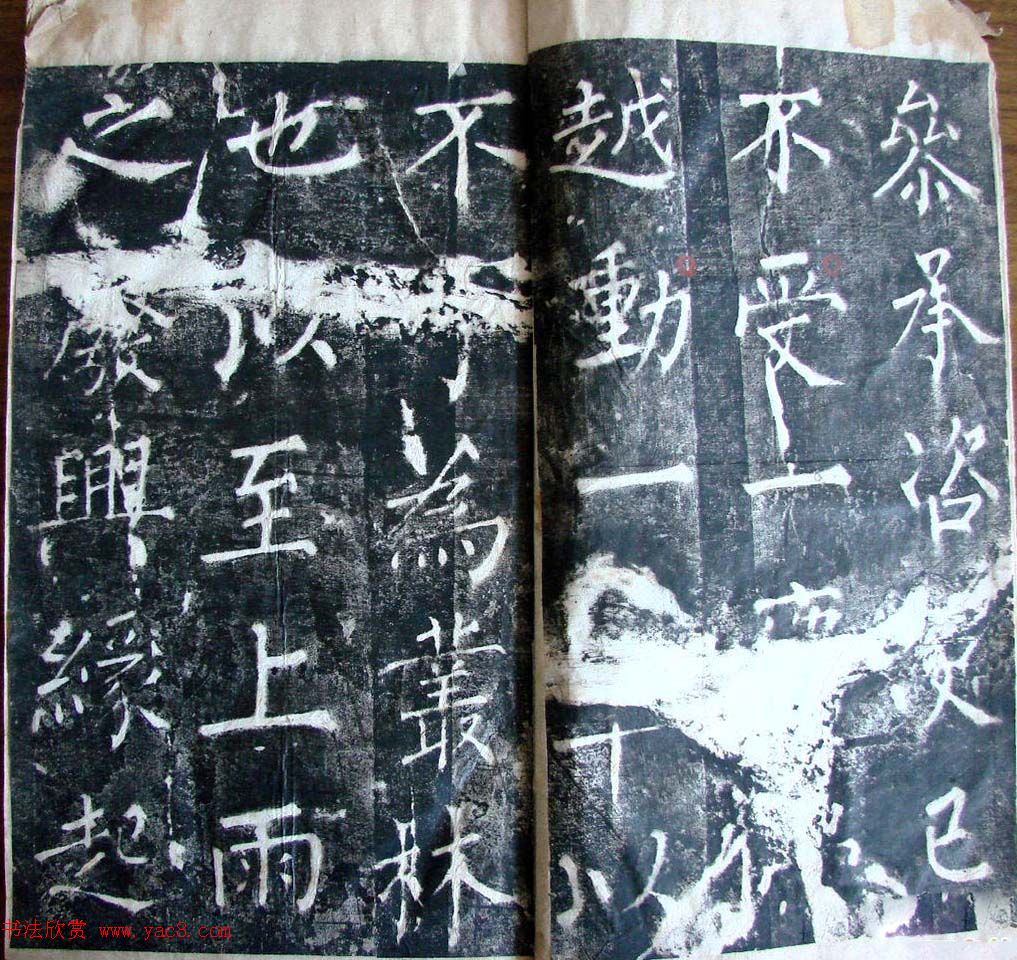 參承諮決已
不受一
越動一下以
不可為叢林
也以至上雨
之廢興緣起
书法欣赏 www.yac8.com